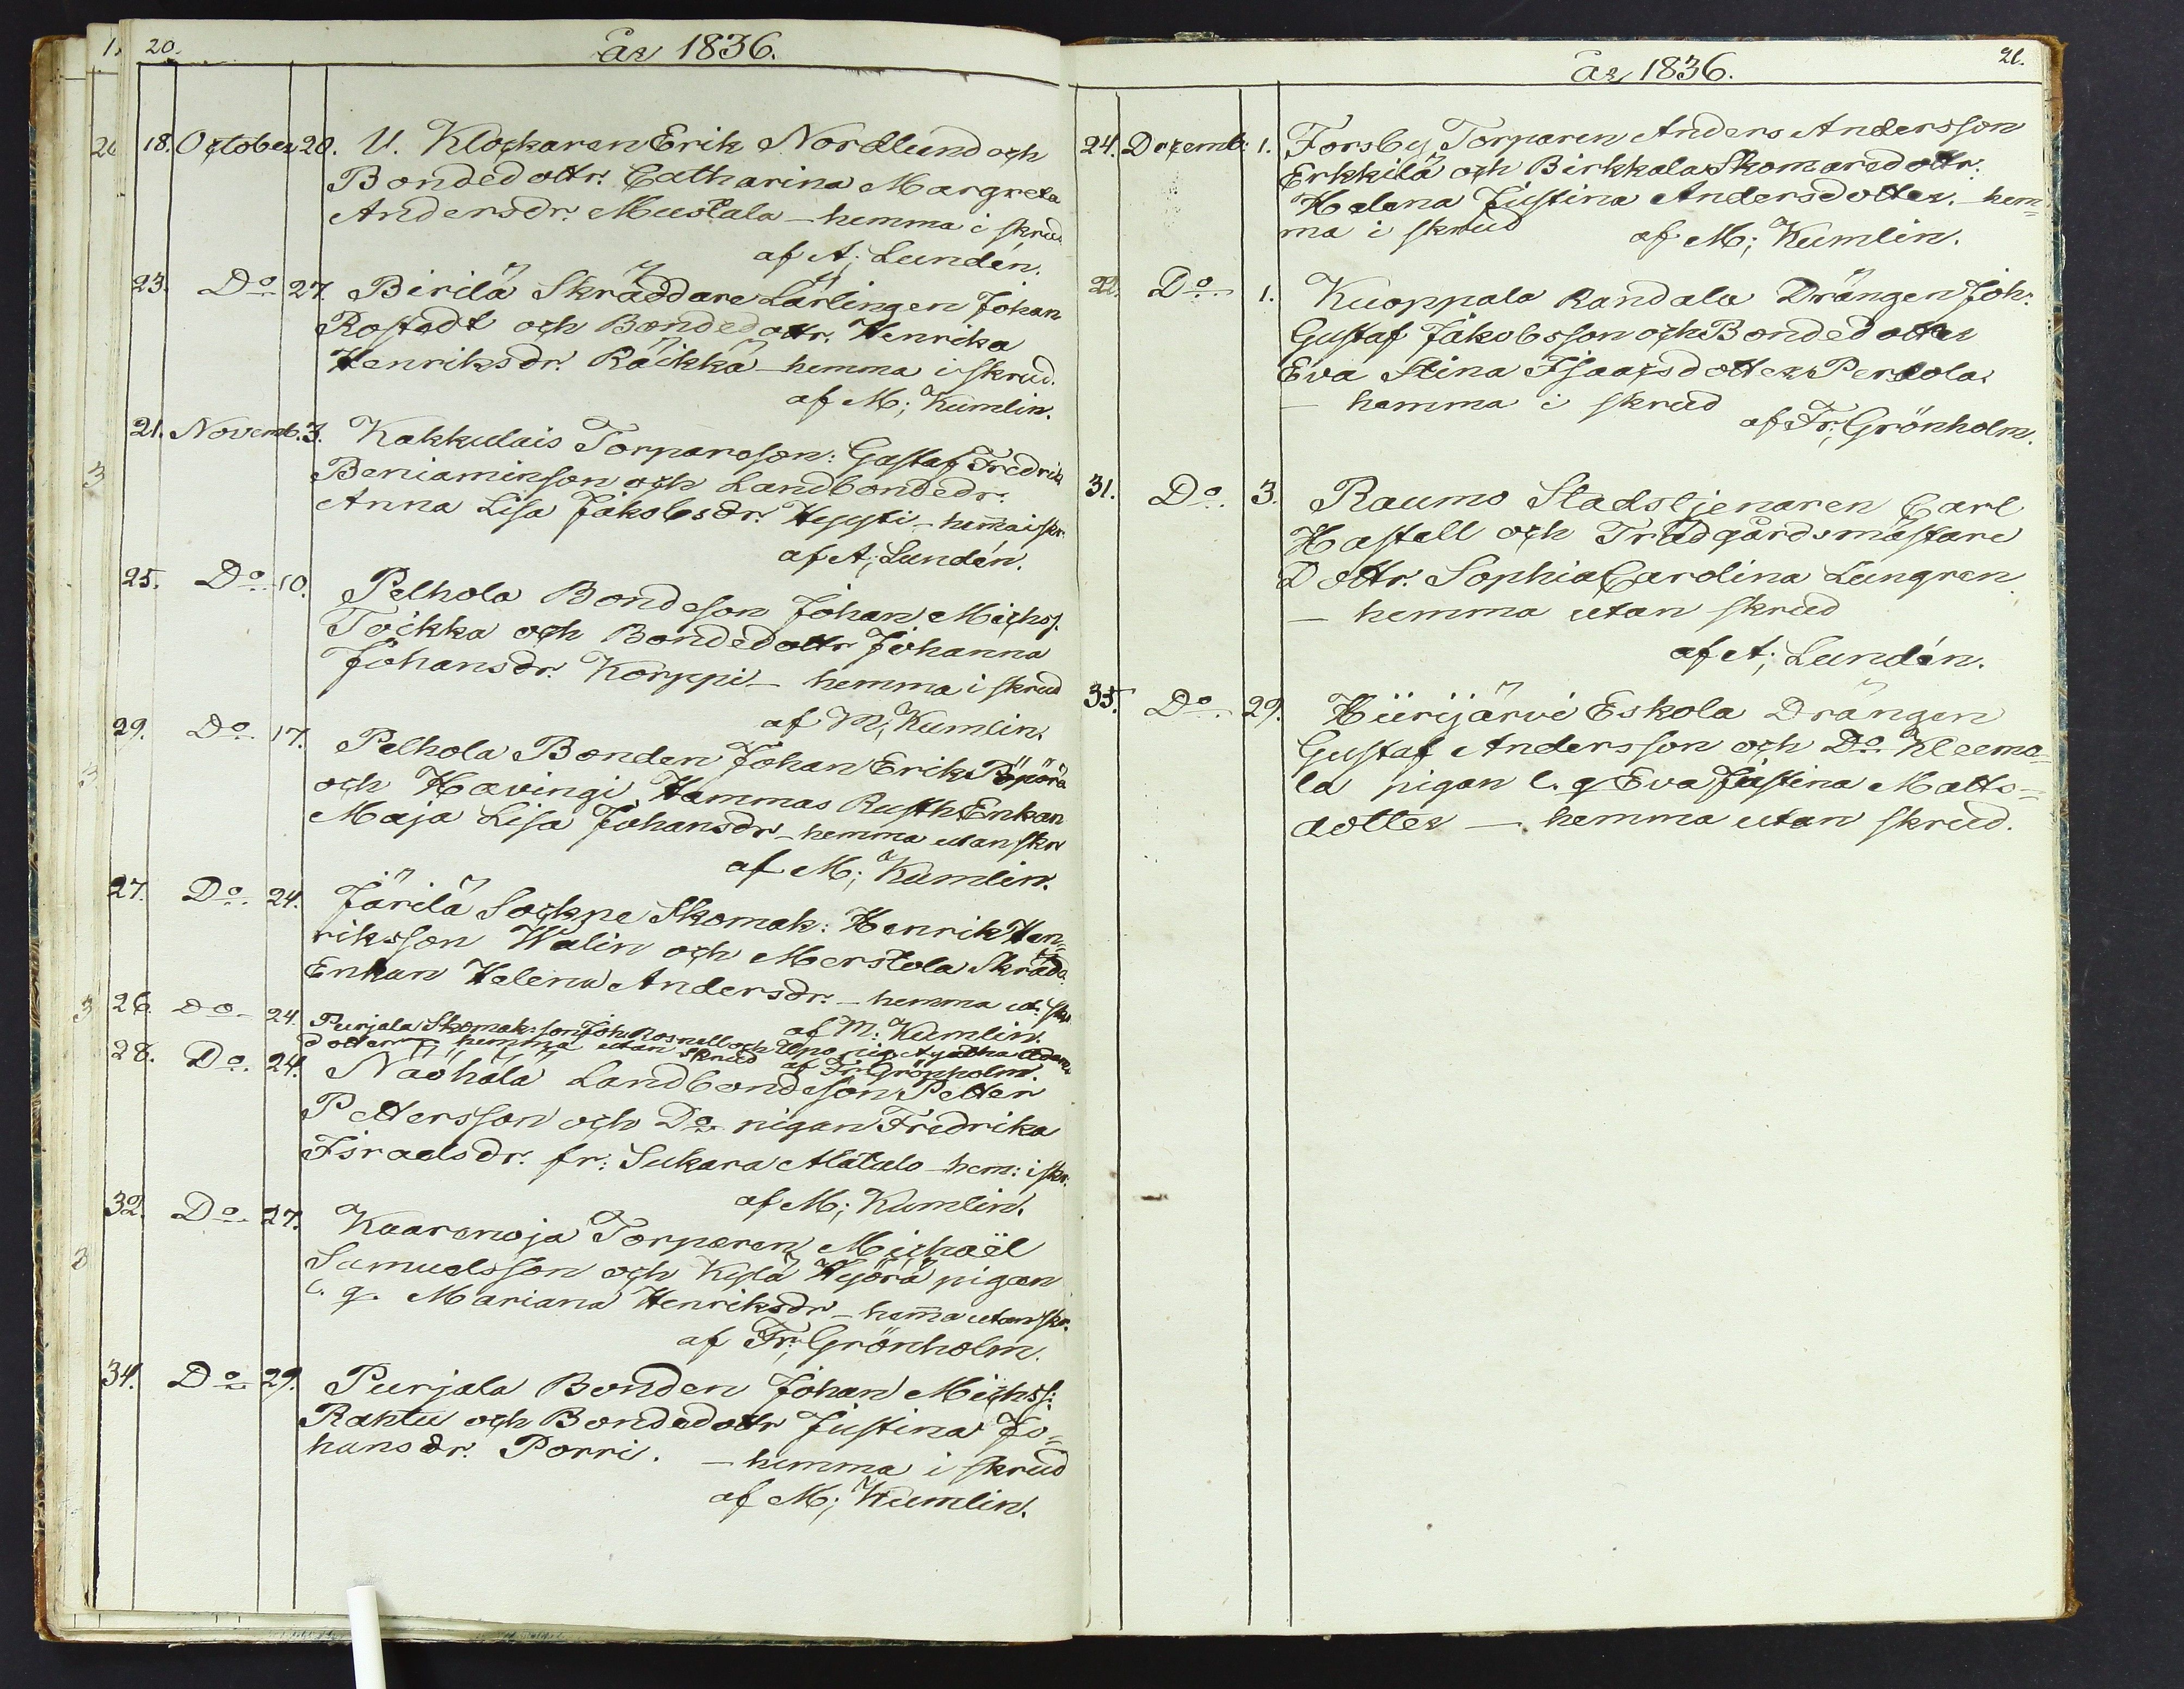 20.
år 1836.
18. October 20. U. Klockaren Erik Nordlund och
Bondedottr. Catharina Margreta
Andersdr. Mustala – hemma i skrud
af A; Lundén.
23. Do 27. Birilä Skräddare Lärlingen Johan
Rostedt och Bondedottr. Henrika
Henriksdr. Räikkä – hemma i skrud.
af M; Kumlin.
21. Novemb. 3. Kakkulais Torpareson: Gustaf Fredrik
Beniaminson och Landbondedr.
Anna Lisa Jakobsdr. Hyysti – hema i skr.
af A; Lundén.
25. Do 10. Pelhola Bondeson Johan Michss.
Toikka och Bondedottr Johanna
Johansdr. Korppi – hemma i skrud
af M; Kumlin.
29. Do 17. Pelhola Bonden Johan Erikss Pöpörä
och Havingi Hammas Rusth Enkan
Maja Lisa Johansdr – hemma utan skr
af M; Kumlin.
27. Do. 24. Järilä Sockne Skomak: Henrik Hen=
riksson Walin och Merstola Skrädd.
Enkan Helena Andersdr. – hemma ut: skr
af M: Kumlin.
26. Do 24. Purjala Skomak: son Joh: Rosnell och Uno pig. Agatha Adams
dotter – hemma utan skrud af Fr: Grönholm.
28. Do. 24. Naöhälä Landbondeson Petter
Pettersson och Do pigan Fredrika
Israelsdr. fr: Sukara Alatalo – hem: i skr.
af M; Kumlin.
32. Do 27. Kaaranoja Torparen Michaël
Samuelsson och Kylä Hyörä pigan
l. q. Mariana Henriksdr – hema utan skr.
af Fr; Grönholm.
34. Do 29. Purjala Bonden Johan Michss:
Rahtu och Bondedottr Justina Jo=
hansdr. Porri. – hemma i skrud
af M; Kumlin.
21.
år 1836.
24. Dezemb: 1. Forsby Torparen Anders Andersson
Erkkilä och Birkkala Skomaredottr:
Helena Justina Andersdotter. – hem=
ma i skrud
af M; Kumlin.
22. Do 1. Kuoppala Randala Drängen Joh:
Gustaf Jakobsson och Bondedotter
Eva Stina Isaacsdotter Pertola
– hemma i skrud
af Fr; Grönholm.
31. Do. 3. Raumo Stadstjenaren Carl
Hastell och Trädgårdsmästare
Dottr. Sophia Carolina Lungren
– hemma utan skrud
af A; Lundén.
35. Do. 29. Hiirijärvi Eskola Drängen
Gustaf Andersson och Do Kleema=
la pigan l. q Eva Justina Matts=
dotter – hemma utan skrud.